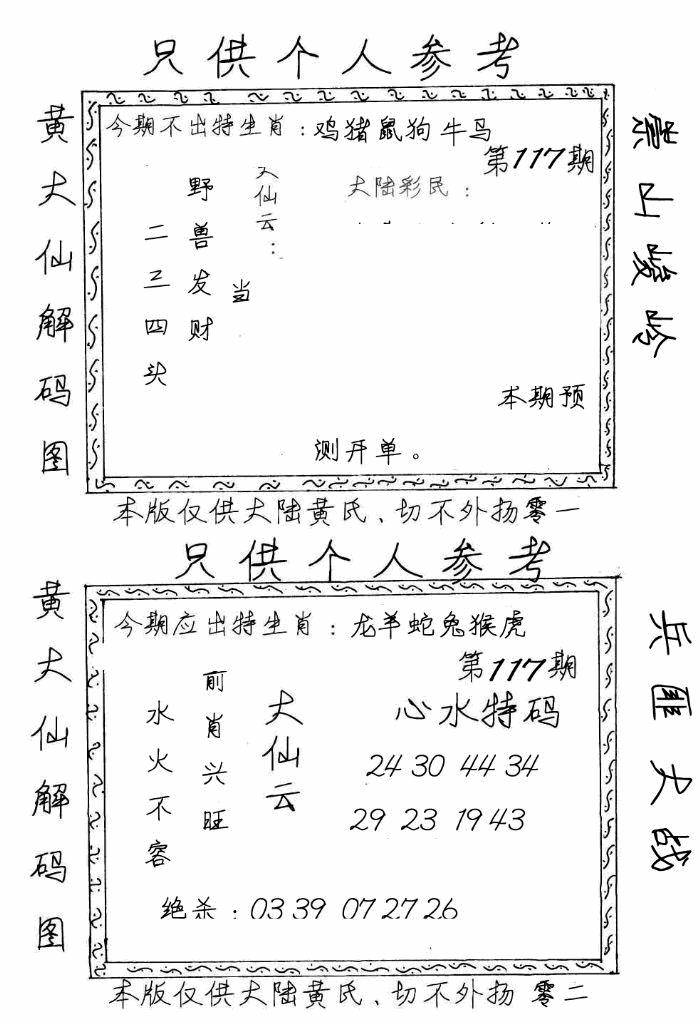 只供个人参考
黄大仙解码图
今期不出特生肖：鸡猪鼠狗牛马
第117期
大仙云：
大陆彩民：
野兽发财
二三四头
当
本期预
测开单。
崇山峻岭
本版仅供大陆黄氏、切不外扬零一
只供个人参考
黄大仙解码图
今期应出特生肖：龙羊蛇兔猴虎
第117期
前肖兴旺
水火不容
大仙云
心水特码
24 30 44 34
29 23 19 43
绝杀：03 39 07 27 26
兵匪大战
本版仅供大陆黄氏、切不外扬 零二